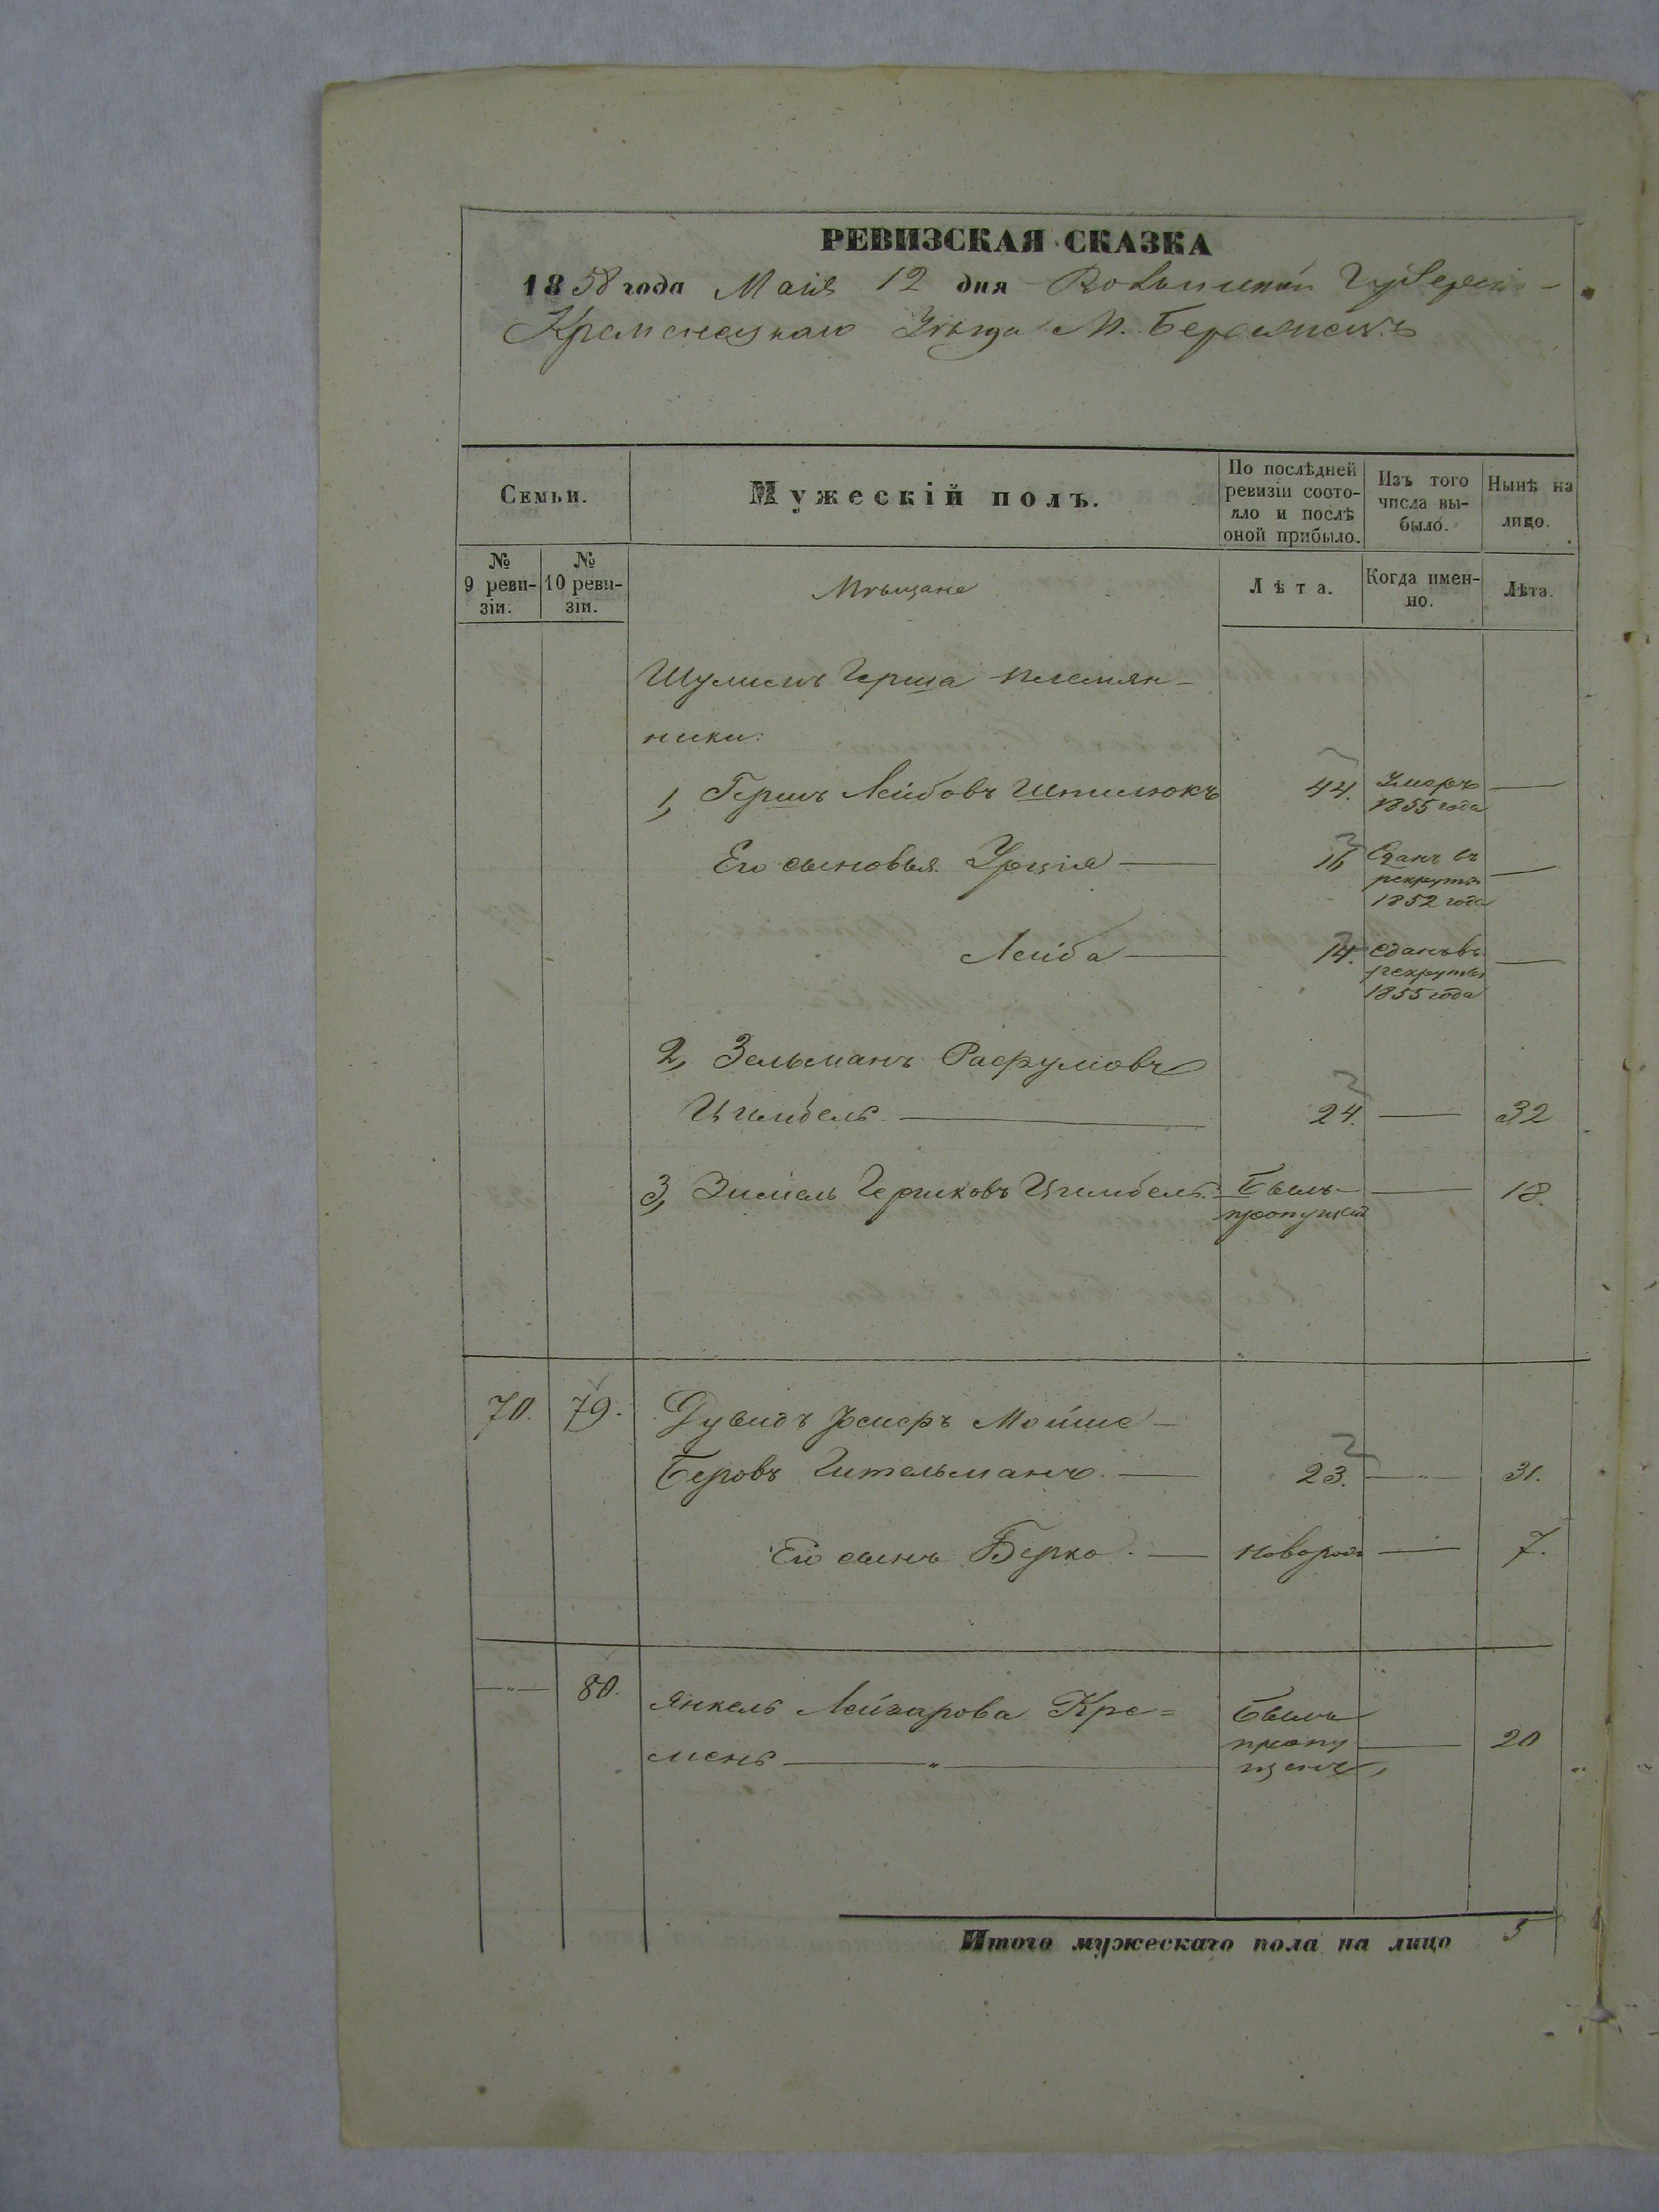 РЕВИЗСКАЯ СКАЗКА
1858 года Маія 12 дня Волынской Губерніи
Кременецкаго Уѣзда М. Бережецъ
Семьи.
Мужескій полъ.
По послѣдней
ревизіи состо-
яло и послѣ
оной прибыло.
Изъ того
числа вы-
было.
Нынѣ на
лицо.
№
9 реви-
зіи.
№
10 реви-
зіи.
Мѣщане
Лѣта.
Когда имен-
но.
Лѣта.
Шулимъ Герша племян-
ники:
1, Гершъ Лейбовъ Шпилюкъ 44. Умеръ
1855 года
Его сыновья Урція 16 Сданъ въ
рекруты
1852 года
Лейба 14. сданъ въ
рекруты
1855 года
2, Зельманъ Рафуловъ
Цимбель 24. 32
3, Зисель Гершковъ Цимбель Былъ 18.
пропущен
70. 79. Дувидъ Іосифъ Мойше-
Беровъ Гительманъ 23. 31.
Его сынъ Берко новорож 7.
80. Янкель Лейзарова Кре=
мень
Былъ
пропу
щенъ
20
Итого мужескаго пола на лицо 5